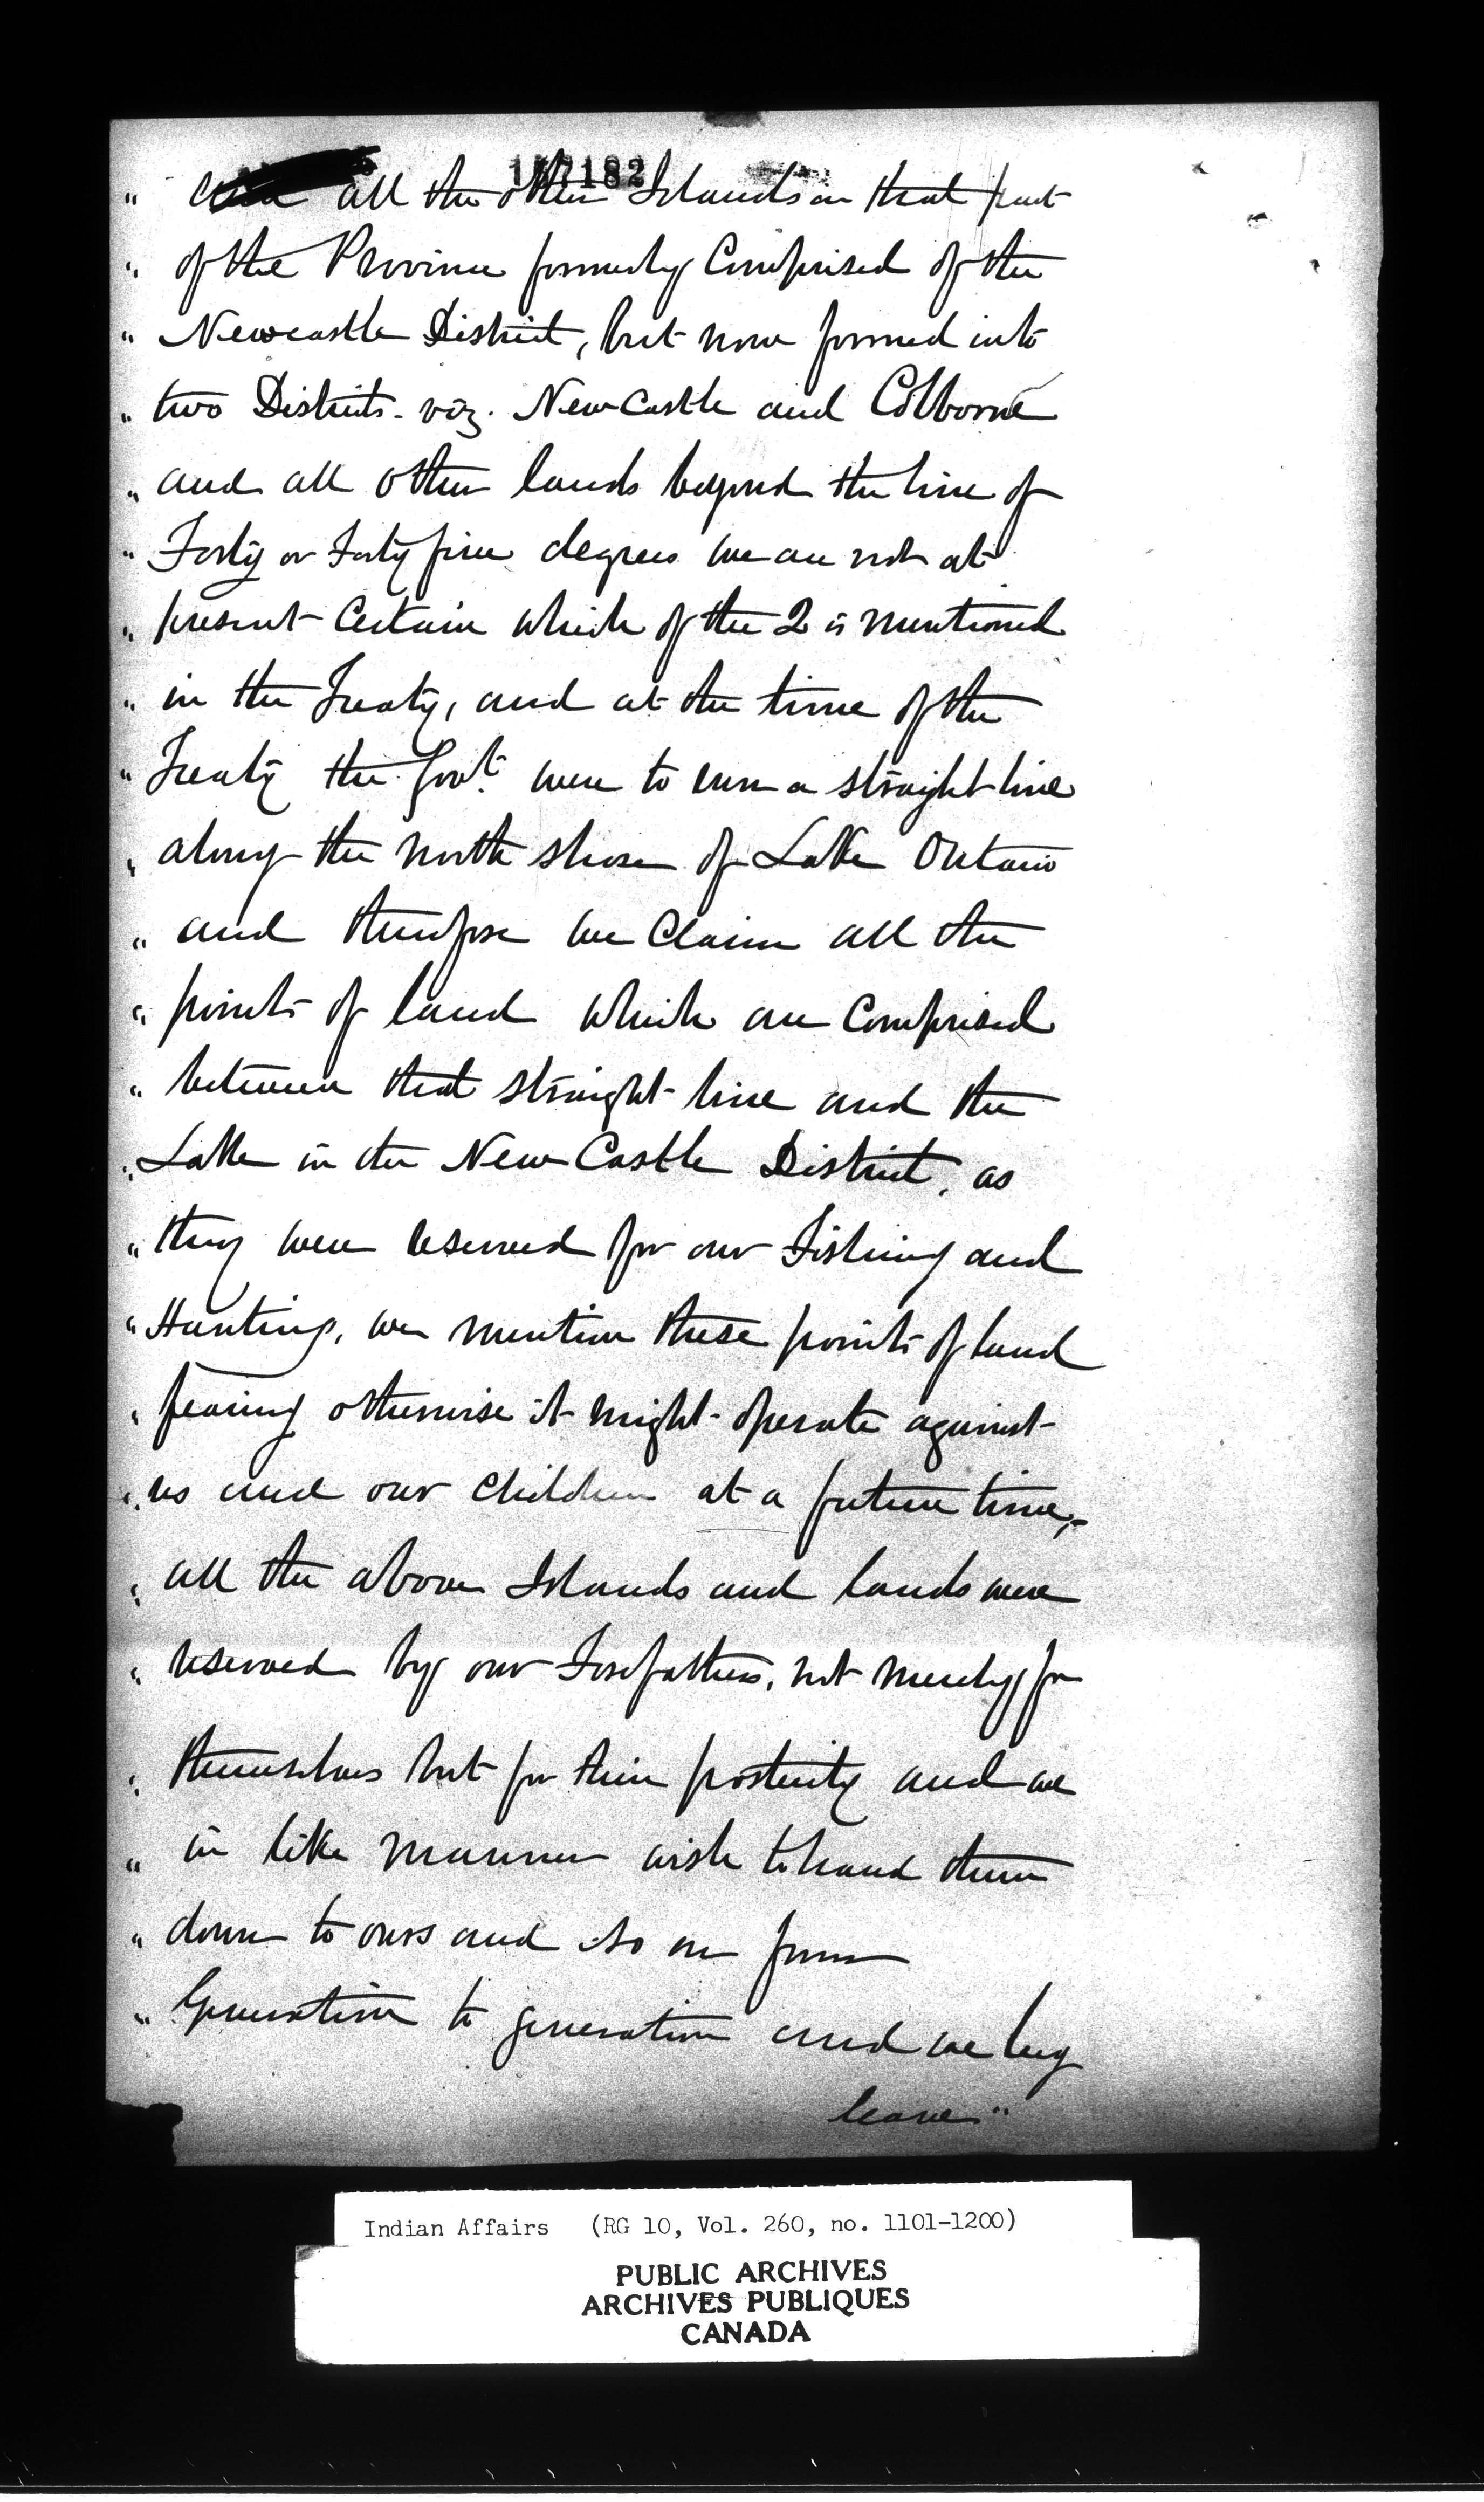 157182
" and all the other Islands on that part
" of the Province formerly Comprised of the
" Newcastle District, but now formed into
" two Districts - viz. NewCastle and Colborne
" and all other lands beyond the line of
" Forty or Forty five degrees we are not at
" present Certain which of the 2 is mentioned
" in the Treaty, and at the time of the
" Treaty the Govt. were to run a straight line
" along the north shore of Lake Ontario
" and therefore we Claim all the
" points of land which are Comprised
" between that straight line and the
" Lake in the New Castle District, as
" they were reserved for our Fishing and
" Hunting, we mention these points of land
" fearing otherwise it might operate against
" us and our children at a future time,-
" all the above Islands and lands were
" reserved by our Forefathers, not merely for
" themselves but for their posterity and we
" in like manner wish to hand them
" down to ours and so on from
" Generation to generation and we beg
leave "
Indian Affairs (RG 10, Vol. 260, no. 1101-1200)
PUBLIC ARCHIVES
ARCHIVES PUBLIQUES
CANADA